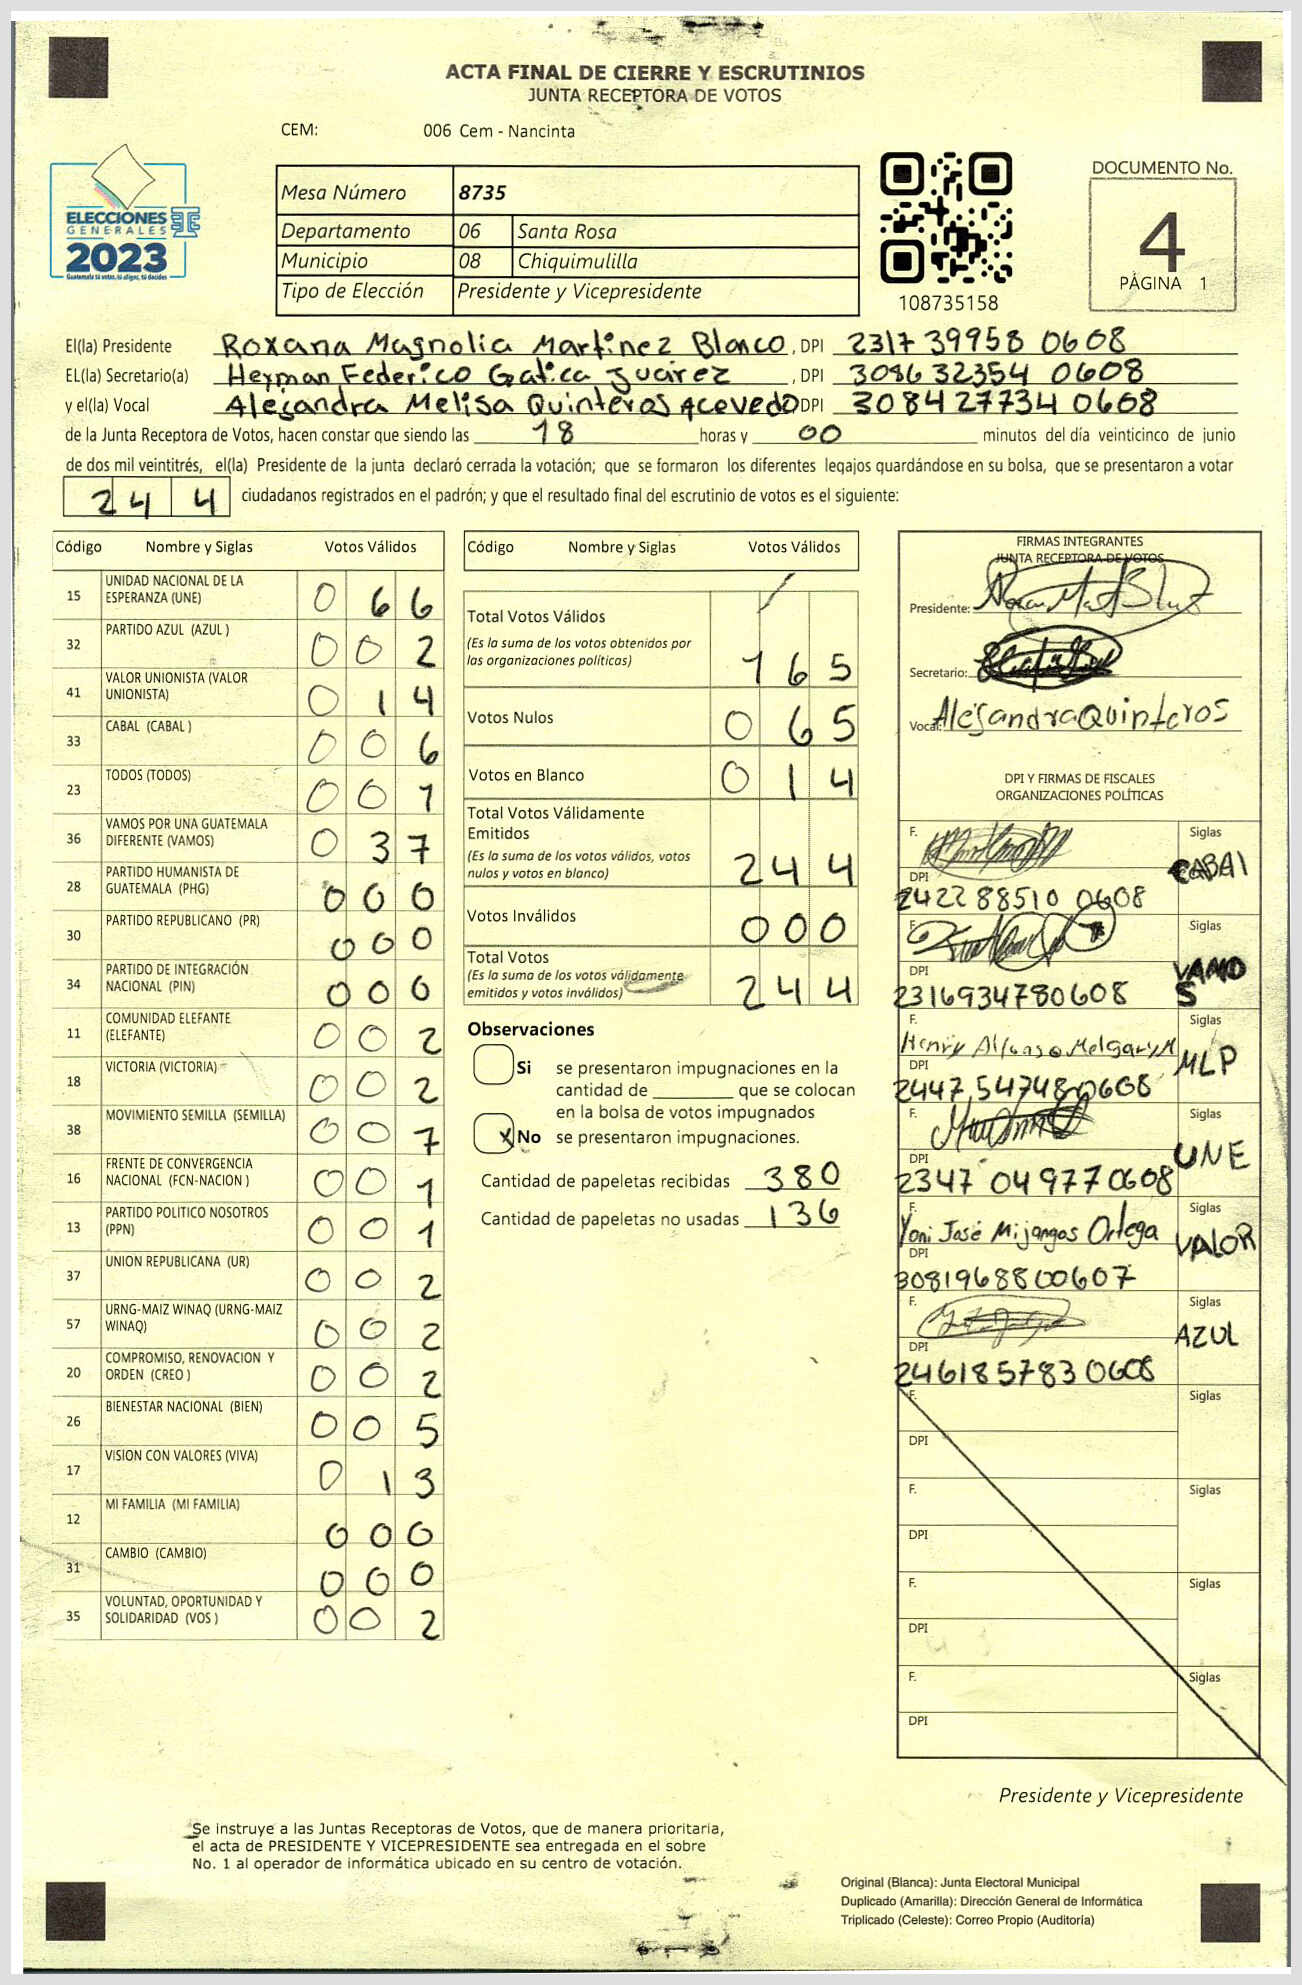 ACTA FINAL DE CIERRE Y ESCRUTINIOS
JUNTA RECEPTORA DE VOTOS
CEM: 006 Cem - Nancinta
ELECCIONES
GENERALES
2023
Guatemala tú votas, tú eliges, tú decides
Mesa Número 8735
Departamento 06 Santa Rosa
Municipio 08 Chiquimulilla
Tipo de Elección Presidente y Vicepresidente
108735158
DOCUMENTO No.
4
PÁGINA 1
El(la) Presidente Roxana Magnolia Martinez Blanco, DPI 2317 39958 0608
EL(la) Secretario(a) Heyman Federico Gatica Juárez, DPI 3086 32354 0608
y el(la) Vocal Alejandra Melisa Quinteros Acevedo DPI 3084 27734 0608
de la Junta Receptora de Votos, hacen constar que siendo las 18 horas y 00 minutos del día veinticinco de junio
de dos mil veintitrés, el(la) Presidente de la junta declaró cerrada la votación; que se formaron los diferentes legajos guardándose en su bolsa, que se presentaron a votar
244 ciudadanos registrados en el padrón; y que el resultado final del escrutinio de votos es el siguiente:
Código Nombre y Siglas Votos Válidos
15 UNIDAD NACIONAL DE LA ESPERANZA (UNE) 066
32 PARTIDO AZUL (AZUL ) 002
41 VALOR UNIONISTA (VALOR UNIONISTA) 014
33 CABAL (CABAL ) 006
23 TODOS (TODOS) 001
36 VAMOS POR UNA GUATEMALA DIFERENTE (VAMOS) 037
28 PARTIDO HUMANISTA DE GUATEMALA (PHG) 000
30 PARTIDO REPUBLICANO (PR) 000
34 PARTIDO DE INTEGRACIÓN NACIONAL (PIN) 000
11 COMUNIDAD ELEFANTE (ELEFANTE) 002
18 VICTORIA (VICTORIA) 002
38 MOVIMIENTO SEMILLA (SEMILLA) 007
16 FRENTE DE CONVERGENCIA NACIONAL (FCN-NACION ) 001
13 PARTIDO POLITICO NOSOTROS (PPN) 001
37 UNION REPUBLICANA (UR) 002
57 URNG-MAIZ WINAQ (URNG-MAIZ WINAQ) 002
20 COMPROMISO, RENOVACION Y ORDEN (CREO ) 002
26 BIENESTAR NACIONAL (BIEN) 005
17 VISION CON VALORES (VIVA) 013
12 MI FAMILIA (MI FAMILIA) 000
31 CAMBIO (CAMBIO) 000
35 VOLUNTAD, OPORTUNIDAD Y SOLIDARIDAD (VOS ) 002
Código Nombre y Siglas Votos Válidos
Total Votos Válidos
(Es la suma de los votos obtenidos por
las organizaciones políticas) 165
Votos Nulos 065
Votos en Blanco 014
Total Votos Válidamente
Emitidos
(Es la suma de los votos válidos, votos
nulos y votos en blanco) 244
Votos Inválidos 000
Total Votos
(Es la suma de los votos válidamente
emitidos y votos inválidos) 244
Observaciones
Si se presentaron impugnaciones en la
cantidad de ________ que se colocan
en la bolsa de votos impugnados
X No se presentaron impugnaciones.
Cantidad de papeletas recibidas 380
Cantidad de papeletas no usadas 136
FIRMAS INTEGRANTES
JUNTA RECEPTORA DE VOTOS
Presidente:
Secretario:
Vocal: Alejandra Quinteros
DPI Y FIRMAS DE FISCALES
ORGANIZACIONES POLÍTICAS
F. Siglas
DPI CABAl
2422 88510 0608
F. Siglas
DPI VAMOS
2316934780608
F. Siglas
Henry Alfonso Melgar y M
DPI MLP
2447 547480608
F. Siglas
DPI UNE
2347 04977 0608
F. Siglas
Yoni José Mijangos Ortega
DPI VALOR
3081968800607
F. Siglas
DPI AZUL
2461857830608
F. Siglas
DPI
F. Siglas
DPI
F. Siglas
DPI
F. Siglas
DPI
Presidente y Vicepresidente
Se instruye a las Juntas Receptoras de Votos, que de manera prioritaria,
el acta de PRESIDENTE Y VICEPRESIDENTE sea entregada en el sobre
No. 1 al operador de informática ubicado en su centro de votación.
Original (Blanca): Junta Electoral Municipal
Duplicado (Amarilla): Dirección General de Informática
Triplicado (Celeste): Correo Propio (Auditoría)